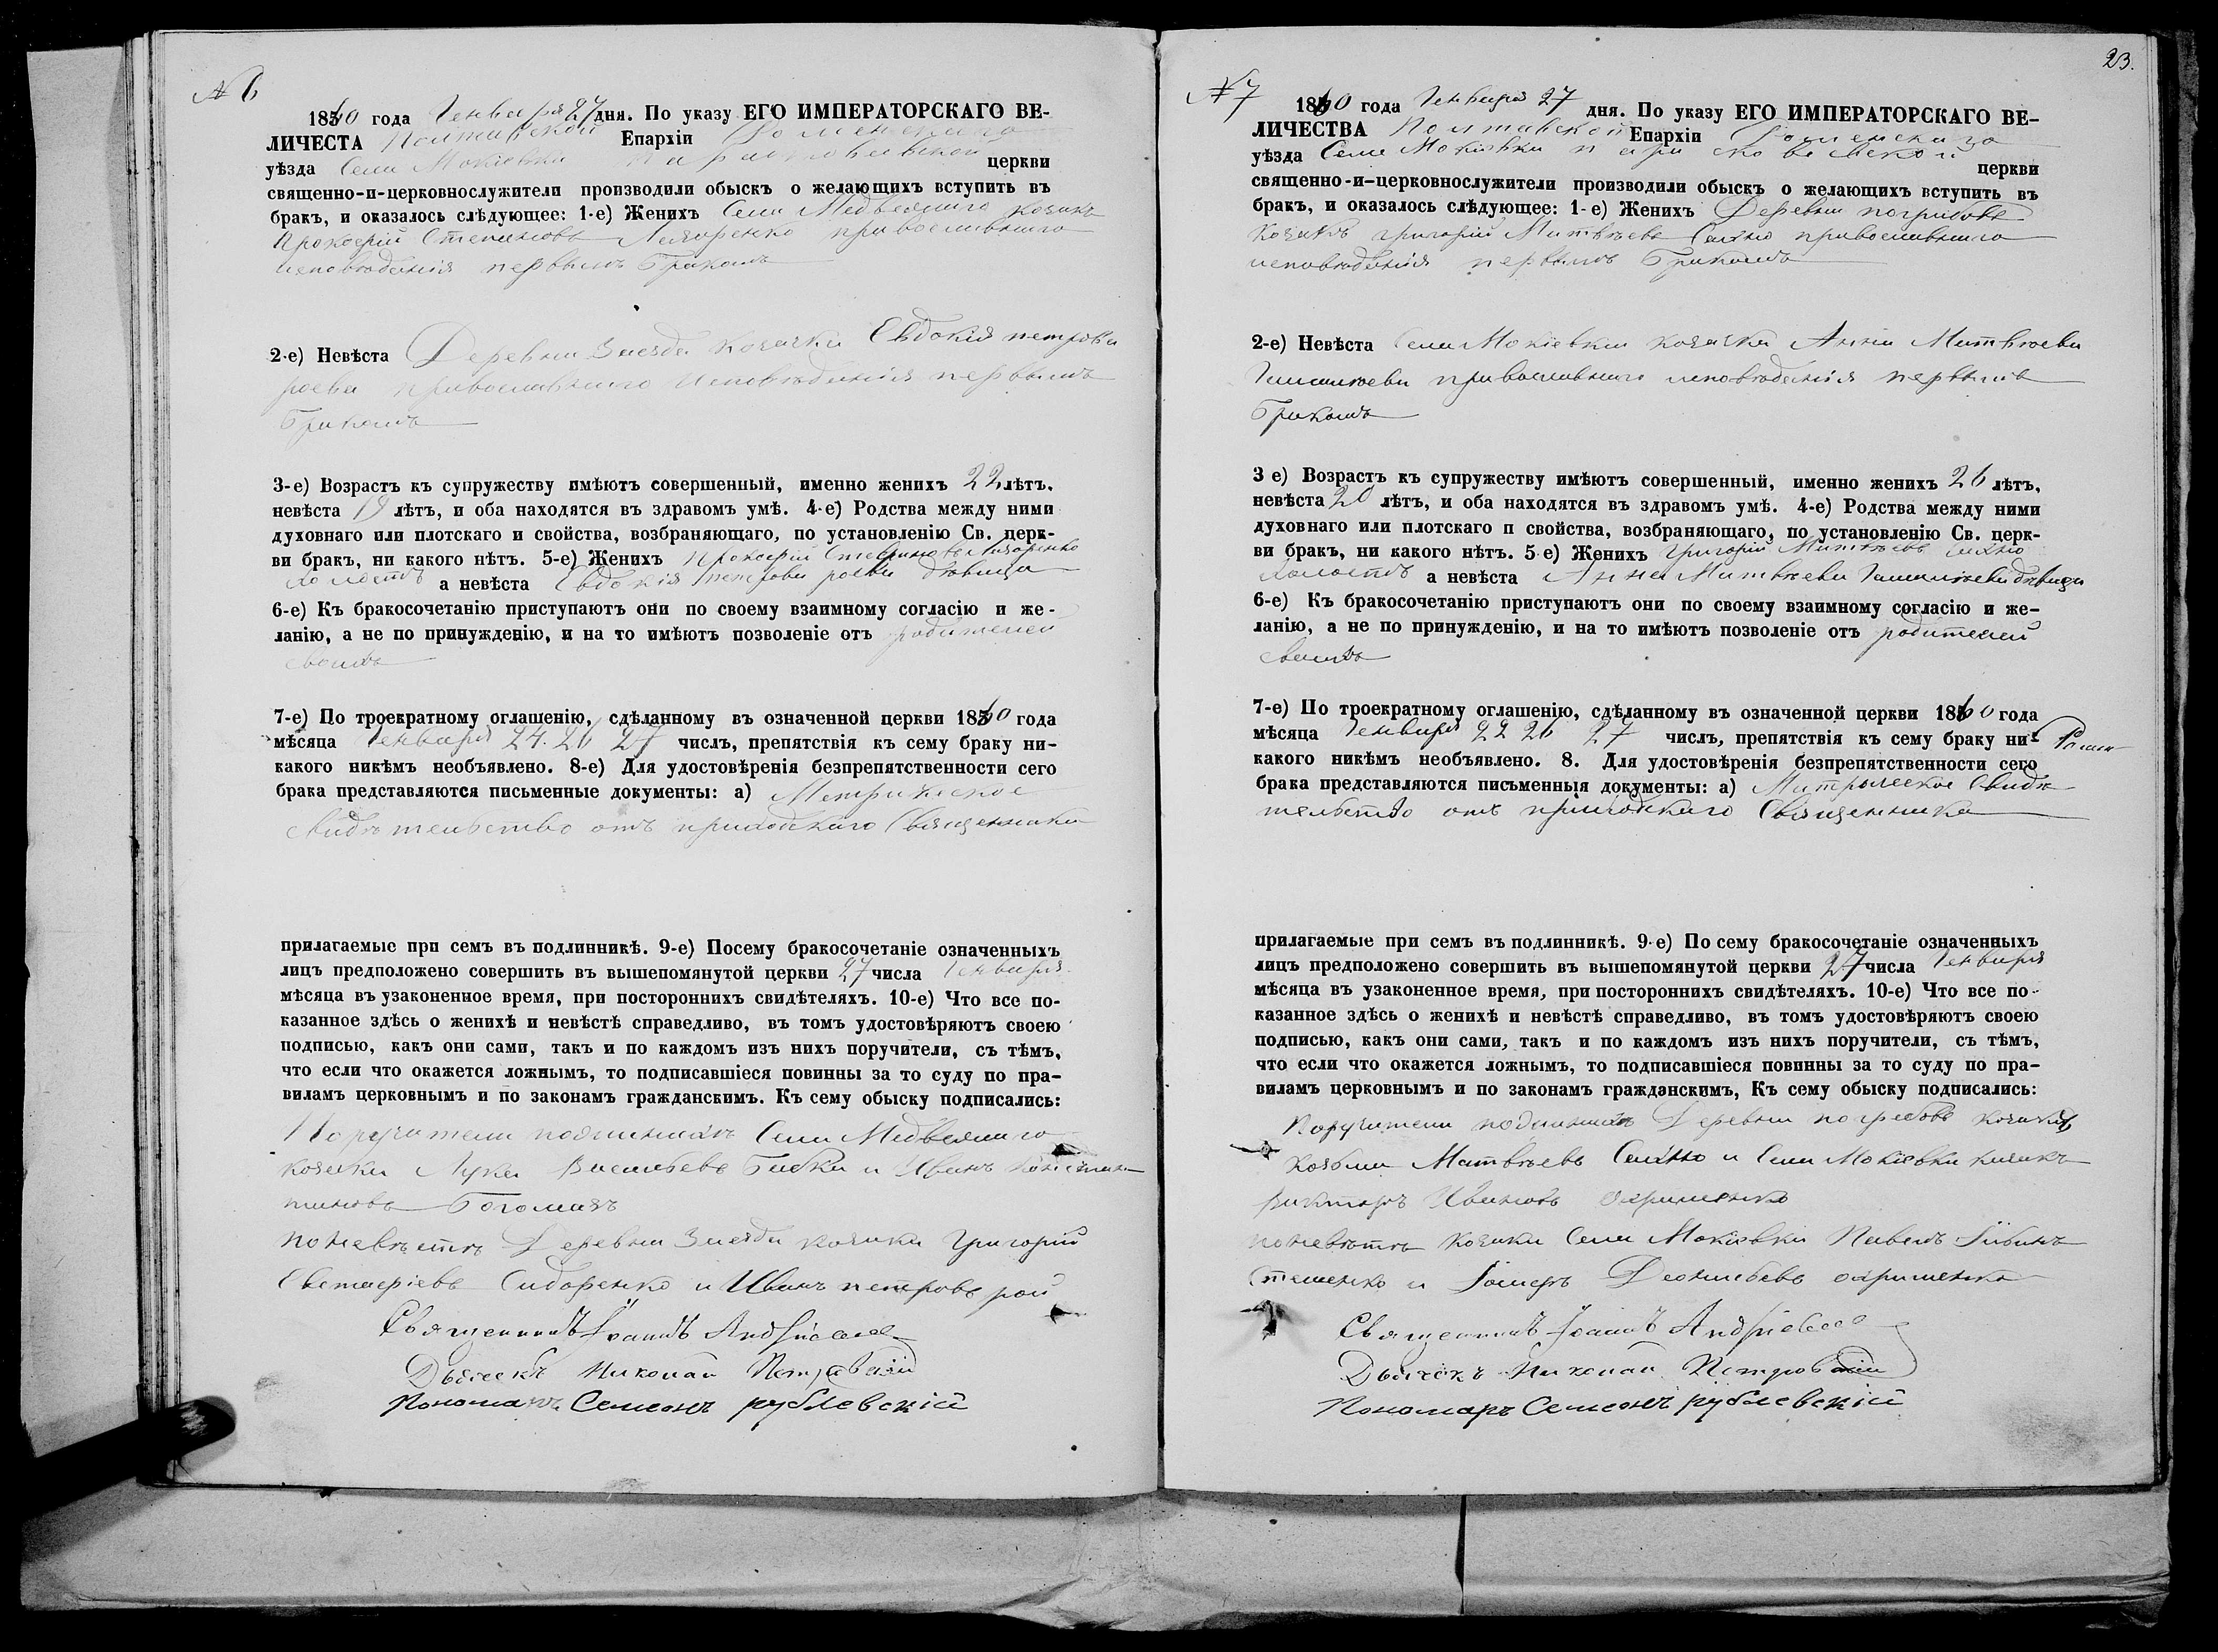 № 6
1860 года Генваря 27 дня. По указу ЕГО ИМПЕРАТОРСКАГО ВЕ-
ЛИЧЕСТА Полтавской Епархіи Роменскаго
уѣзда Села Мокіевки церкви
священно-и-церковнослужители производили обыскъ о желающихъ вступить въ
бракъ, и оказалось слѣдующее: 1-е) Женихъ Села Медвежаго козакъ
Прокофій Степановъ Лазоренко православнаго
исповѣданія первымъ бракомъ
2-е) Невѣста Деревни Заезда козачка Евдокія петрова
роева православнаго исповѣданія первымъ
бракомъ
3-е) Возрастъ къ супружеству имѣютъ совершенный, именно женихъ 22 лѣтъ,
невѣста 19 лѣтъ, и оба находятся въ здравомъ умѣ. 4-е) Родства между ними
духовнаго или плотскаго и свойства, возбраняющаго, по установленію Св. церк-
ви бракъ, ни какого нѣтъ. 5-е) Женихъ Прокофій Степановъ Лазоренко
холостъ а невѣста Евдокія петрова роева дѣвица
6-е) Къ бракосочетанію приступаютъ они по своему взаимному согласію и же-
ланію, а не по принужденію, и на то имѣютъ позволеніе отъ родителей
своихъ
7-е) По троекратному оглашенію, сдѣланному въ означенной церкви 1860 года
мѣсяца Генваря 24. 26 27 числъ, препятствія къ сему браку ни-
какого никѣмъ необъявлено. 8-е) Для удостовѣренія безпрепятственности сего
брака представляются письменные документы: а) Метрическое
свидѣтельство отъ приходскаго священника
прилагаемые при семъ въ подлинникѣ. 9-е) Посему бракосочетаніе означенныхъ
лицъ предположено совершить въ вышепомянутой церкви 27 числа Генваря
мѣсяца въ узаконенное время, при постороннихъ свидѣтеляхъ. 10-е) Что все по-
казанное здѣсь о женихѣ и невѣстѣ справедливо, въ томъ удостовѣряютъ своею
подписью, какъ они сами, такъ и по каждомъ изъ нихъ поручители, съ тѣмъ,
что если что окажется ложнымъ, то подписавшіеся повинны за то суду по пра-
виламъ церковнымъ и по законамъ гражданскимъ. Къ сему обыску подписались:
Поручители поженихѣ Села Медвежаго
козаки Лука Васильевъ и Иванъ Констан-
тиновъ Богомазъ
поневѣстѣ Деревни Заезда козаки Григорій
Евстафіевъ Сидоренко и Иванъ петровъ рой
Священникъ Іоаннъ Андріевск
Дьячекъ Николай Петровскій
Пономаръ Семеонъ рублевскій
23.
№ 7
1860 года Генваря 27 дня. По указу ЕГО ИМПЕРАТОРСКАГО ВЕ-
ЛИЧЕСТВА Полтавской Епархіи Роменскаго
уѣзда Села Мокіевки церкви
священно-и-церковнослужители производили обыскъ о желающихъ вступить въ
бракъ, и оказалось слѣдующее: 1-е) Женихъ Деревни погрибовъ
козакъ григорій Матвѣевъ православнаго
исповѣданія первымъ бракомъ
2-е) Невѣста Села Мокіевки козачка Анна Матвѣева
православнаго исповѣданія первымъ
бракомъ
3 е) Возрастъ къ супружеству имѣютъ совершенный, именно женихъ 26 лѣтъ,
невѣста 20 лѣтъ, и оба находятся въ здравомъ умѣ. 4-е) Родства между ними
духовнаго или плотскаго п свойства, возбраняющаго, по установленію Св. церк-
ви бракъ, ни какого нѣтъ. 5 е) Женихъ григорій Матвѣевъ
холостъ а невѣста Анна Матвѣева дѣвица
6-е) Къ бракосочетанію приступаютъ они по своему взаимному согласію и же-
ланію, а не по принужденію, и на то имѣютъ позволеніе отъ родителей
своихъ
7-е) По троекратному оглашенію, сдѣланному въ означенной церкви 1860 года
мѣсяца Генваря 22 26 27 числъ, препятствія къ сему браку ни-
какого никѣмъ необъявлено. 8. Для удостовѣренія безпрепятственности сего
брака представляются письменныя документы: а) Метрическое Свидѣ-
тельство отъ приходскаго Священника
прилагаемые при семъ въ подлинникѣ. 9-е) По сему бракосочетаніе означенныхъ
лицъ предположено совершить въ вышепомянутой церкви 27 числа Генваря
мѣсяца въ узаконенное время, при постороннихъ свидѣтеляхъ. 10-е) Что все по-
казанное здѣсь о женихѣ и невѣстѣ справедливо, въ томъ удостовѣряютъ своею
подписью, какъ они сами, такъ и по каждомъ изъ нихъ поручители, съ тѣмъ,
что если что окажется ложнымъ, то подписавшіеся повинны за то суду по пра-
виламъ церковнымъ и по законамъ гражданскимъ, Къ сему обыску подписались:
Поручители поженихѣ Деревни погребовъ козаки
Козьма Матвѣевъ и Села Мокіевки козакъ
Викторъ Ивановъ охрименко
поневѣстѣ козаки Села Мокіевки Павелъ
Стешенко и охрименко
Священникъ Іоаннъ Андріевск
Дьячекъ Николай Петровскій
Пономаръ Семеонъ рублевскій